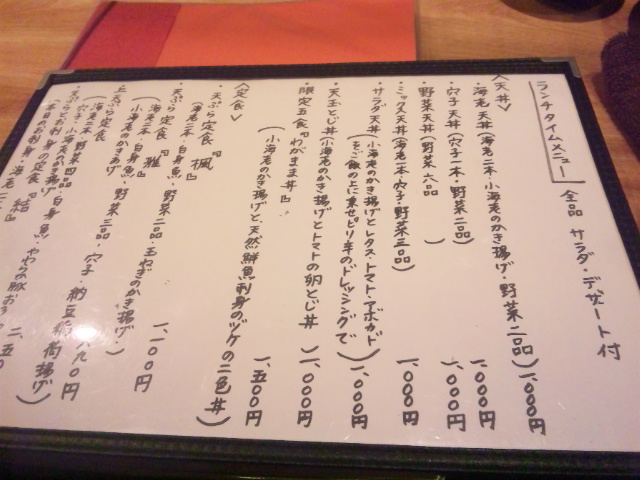 ランチタイムメニュー
全品 サラダ・デザート付
〈天丼〉
・海老天丼(海老二本・小海老のかき揚げ・野菜二品)一、〇〇〇円
・穴子天丼(穴子一本・野菜二品) 一、〇〇〇円
・野菜天丼(野菜六品) 一、〇〇〇円
・ミックス天丼(海老一本・穴子・野菜三品) 一、〇〇〇円
・サラダ天丼(小海老のかき揚げとレタス・トマト・アボカド
をご飯の上に乗せピリ辛のドレッシングで) 一、〇〇〇円
・天玉とじ丼(小海老のかき揚げとトマトの卵とじ丼) 一、〇〇〇円
・限定五食『わがまま丼』
(小海老のかき揚げと、天然鮮魚刺身のヅケの二色丼) 一、五〇〇円
〈定食〉
・天ぷら定食『楓』
(海老二本・白身魚・野菜二品・玉ねぎのかき揚げ・) 一、一〇〇円
・天ぷら定食『雅』
(海老二本・白身魚・
小海老のかきあげ・野菜三品・
上天ぷら定食
(海老二本・野菜四品・白身魚・
穴子・小海老のかき揚げ
・天ぷらとお刺身の定食『結』
(本日のお刺身・海老二